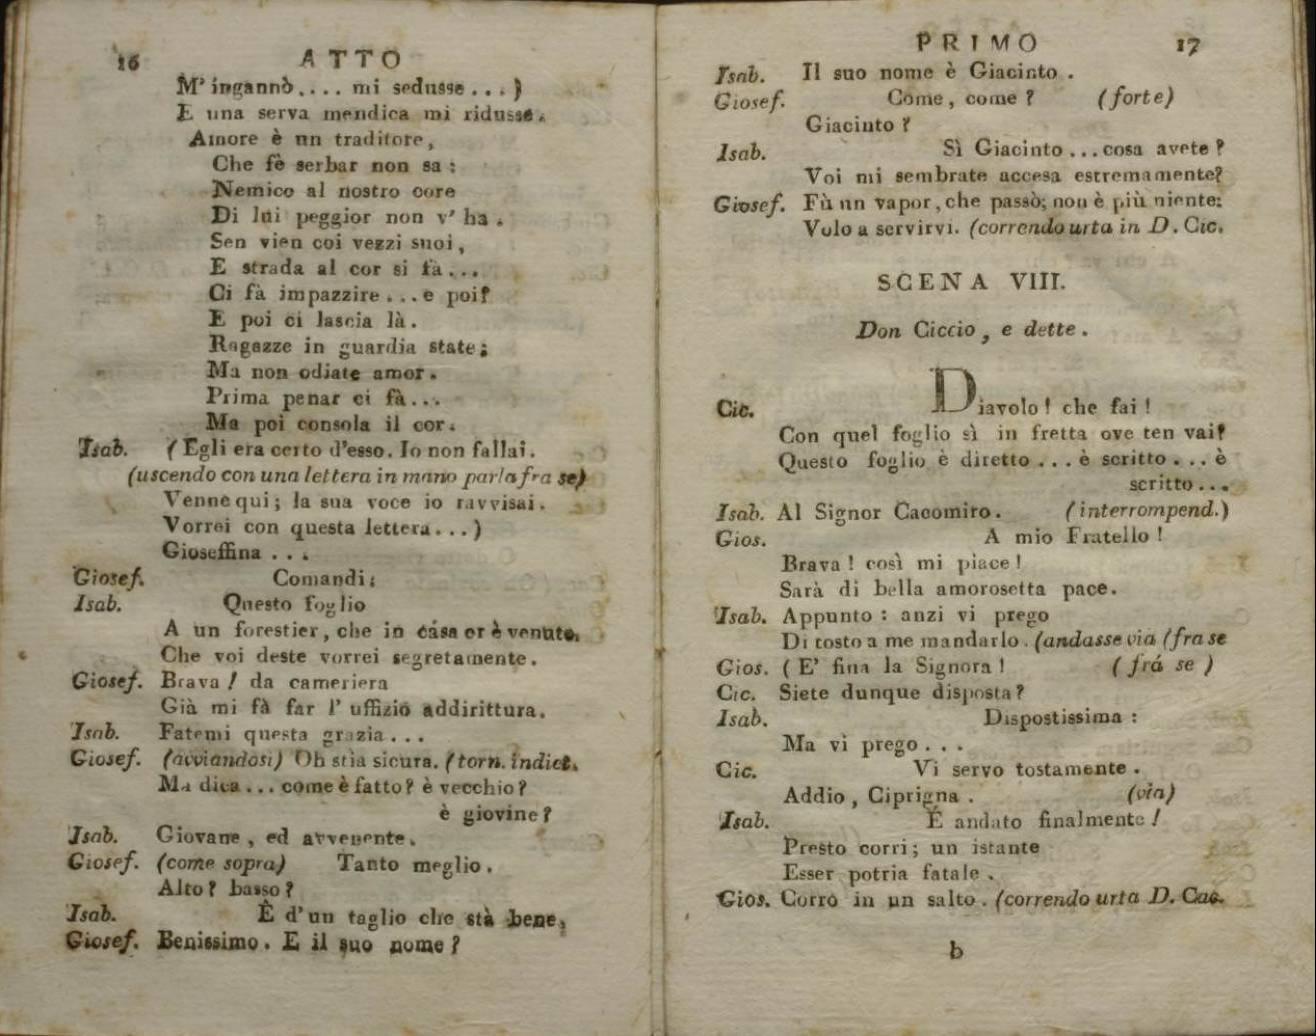 16 ATTO
M' ingannò.... mi sedusse...)
E una serva mendica mi ridusse.
Amore è un traditore,
Che fè serbar non sa:
Nemico al nostro core
Di lui peggior non v' ha.
Sen vien coi vezzi suoi,
E strada al cor si fa...
Ci fà impazzire...e poi?
E poi ci lascia là.
Ragazze in guardia state;
Ma non odiate amor.
Prima penar ci fà...
Ma poi consola il cor.
Isab. (Egli era certo d'esso. Io non fallai.
(uscendo con una lettera in mano parla fra se)
Venne qui; la sua voce io ravvisai.
Vorrei con questa lettera...)
Gioseffina...
Giosef. Comandi;
Isab. Questo foglio
A un forestier, che in casa or è venuto,
Che voi deste vorrei segretamente.
Giosef. Brava! da cameriera
Già mi fà far l' uffizio addirittura.
Isab. Fatemi questa grazia...
Giosef. (avviandosi) Oh stia sicura. (torn. indiet.
Ma dica... come è fatto? è vecchio?
è giovine?
Isab. Giovane, ed avvenente.
Giosef. (come sopra) Tanto meglio.
Alto? basso?
Isab. È d'un taglio che stà bene,
Giosef. Benissimo. E il suo nome?
PRIMO 17
Isab. Il suo nome è Giacinto.
Giosef. Come, come? (forte)
Giacinto?
Isab. Sì Giacinto...cosa avete?
Voi mi sembrate accesa estremamente?
Giosef. Fù un vapor, che passò; non è più niente:
Volo a servirvi. (correndo urta in D. Cic.
SCENA VIII.
Don Ciccio, e dette.
Cic. Diavolo! che fai!
Con quel foglio sì in fretta ove ten vai?
Questo foglio è diretto... è scritto... è
scritto...
Isab. Al Signor Cacomiro. (interrompend.)
Gios. A mio Fratello!
Brava! così mi piace!
Sarà di bella amorosetta pace.
Isab. Appunto: anzi vi prego
Di tosto a me mandarlo. (andasse via (fra se
Gios. (E' fina la Signora! (frá se)
Cic. Siete dunque disposta?
Isab. Dispostissima:
Ma vi prego...
Cic. Vi servo tostamente.
Addio, Ciprigna. (via)
Isab. É andato finalmente!
Presto corri; un istante
Esser potria fatale.
Gios. Corro in un salto. (correndo urta D. Cac.
b